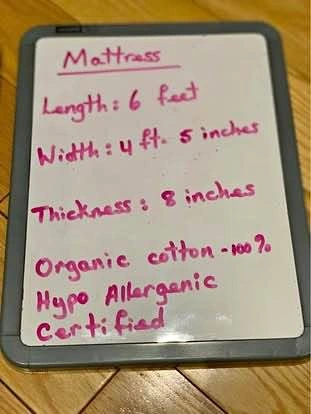 Mattress
Length: 6 feet
Width: 4 ft. 5 inches
Thickness: 8 inches
Organic cotton - 100%
Hypo Allergenic
Certified